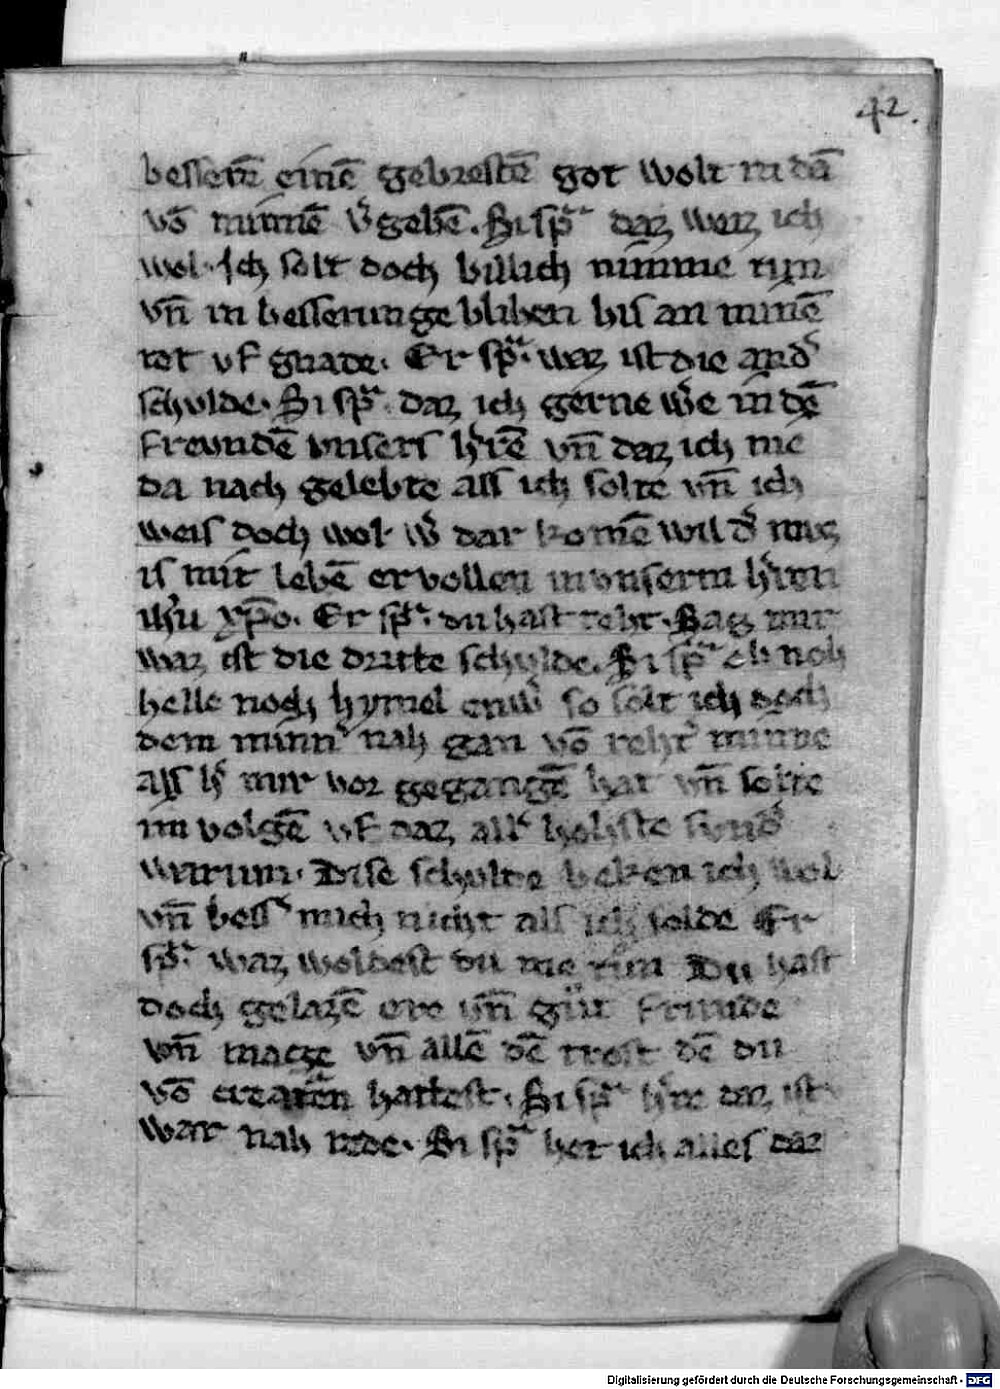 42.
bessern̄ einē gebrestē got wolt in dā
vō minnē v͛gebē. Si sp͛ᵃ daz waiz ich
wol. Ich solt doch billich nimme tvn
vn̄ in besserunge bliben bis an minē
tot vf gnade. Er spᵃ. waz ist die and͛
schvlde. Si spᵃ daz ich gerne we͛ in dē
freundē vnsers h͛rē vn̄ daz ich nie
da nach gelebte als ich solte vn̄ ich
weis doch wol w͛ dar komē wil d͛ mvz
is mit lebē ervollen in vnserm h͛ren
ih̄u xp̄o. Er spᵃ. du hast reht. Sag mir
waz ist die dritte schvlde. Si spᵃ ob noh
helle noch hymel enw͛ so solt ich doch
dem minn͛ nah gan vō reht͛ minne
als h͛ mir vor gegangē hat vn̄ solte
im volgē vf daz all͛ hohste svnd͛
warum. Dise schvlde beken ich wol
vn̄ bess͛ mich nicht als ich solde Er
spᵃ. waz woldest du me tun Du hast
doch gelazē ere vn̄ gut frunde
vn̄ mage vn̄ allē dē trost dē du
vō creaturēn hattest. Si spᵃ h͛re daz ist
war nah rede. Si spᵃ het ich alles daz
Digitalisierung gefördert durch die Deutsche Forschungsgemeinschaft - DFG